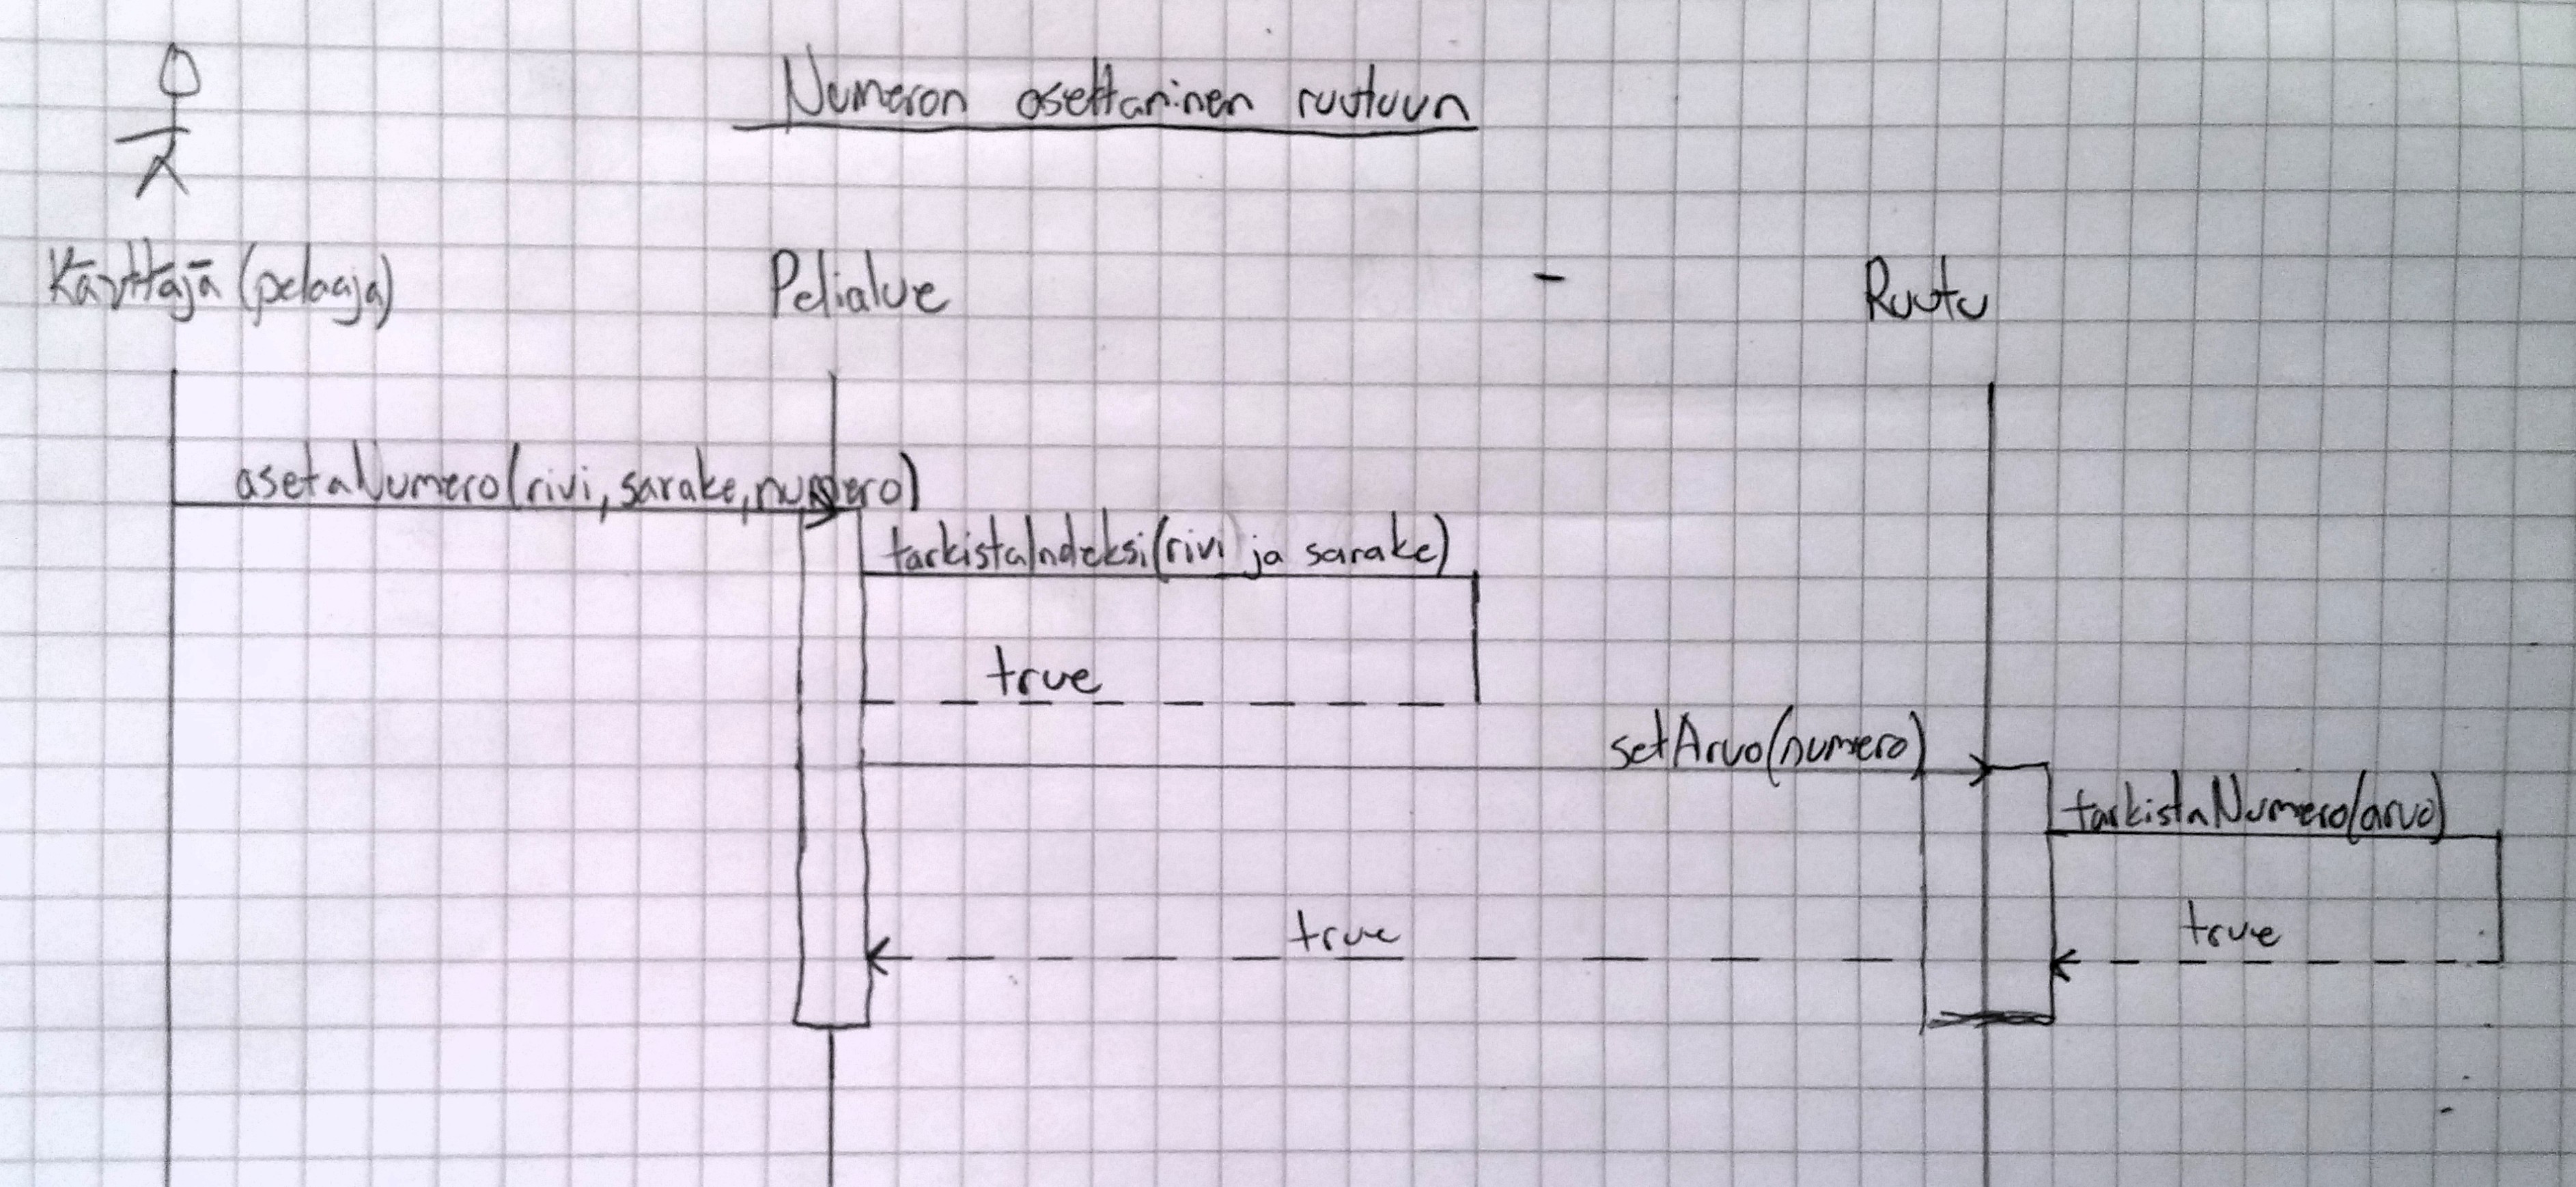 Numeron asettaminen ruutuun
Käyttäjä (pelaaja)
Pelialue
Ruutu
asetaNumero(rivi, sarake, numero)
tarkistaIndeksi(rivi ja sarake)
true
setArvo(numero)
tarkistaNumero(arvo)
true
true